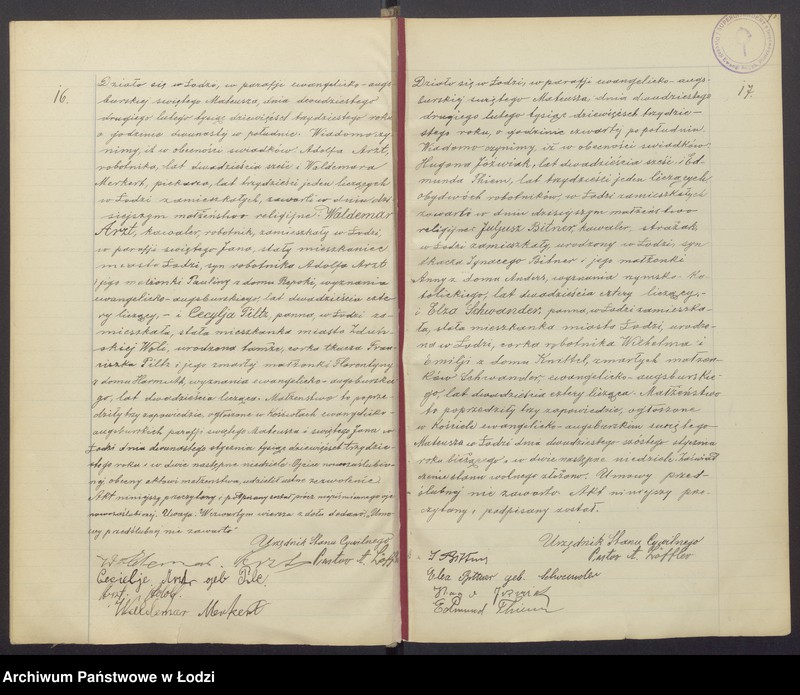 16.
Działo się w Łodzi, w parafji ewangelicko-augs-
burskiej świętego Mateusza, dnia dwudziestego
drugiego lutego tysiąc dziewięćset trzydziestego roku
o godzinie dwunastej w południe. Wiadomo czy-
nimy, iż w obecności świadków Adolfa Arzt,
robotnika, lat dwadzieścia sześć i Waldemara
Merkert, piekarza, lat trzydzieści jeden liczących
w Łodzi zamieszkałych, zawarto w dniu dzi
siejszym małżeństwo religijne: Waldemar
Arzt, kawaler, robotnik, zamieszkały w Łodzi,
w parafji świętego Jana, stały mieszkaniec
miasta Łodzi, syn robotnika Adolfa Arzt
i jego małżonki Pauliny z domu wyznania
ewangelicko-augsburskiego, lat dwadzieścia czte
ry liczący, - i Cecylja Piltz, panna, w Łodzi za-
mieszkała, stała mieszkanka miasta Zduń-
skiej Woli, urodzona tamże, córka tkacza Fran
ciszka Piltz i jego zmarłej małżonki Florentyny
z domu wyznania ewangelicko-augsburskie-
go, lat dwadzieścia licząca. Małżeństwo to poprze-
dziły trzy zapowiedzie ogłoszone w Kościołach ewangelicko-
augsburskich parafji świętego Mateusza i świętego Jana w
Łodzi dnia dwunastego stycznia tysiąc dziewięćset trzydzie-
stego roku i w dwie następne niedziele. Ojciec nowozaślubio-
nej obecny aktowi małżeństwa, udzielił ustnie zezwolenie.
Akt niniejszy przeczytany i podpisany został przez
Uwaga: W czwartym wierszu z dołu dodano: Umo-
wy przedślubnej nie zawarto
Urzędnik Stanu Cywilnego
Pastor A. Löffler
Waldemar Arzt
Arzt geb Pilc
Arzt Adolf
Waldemar Merkert
17.
Działo się w Łodzi, w parafji ewangelicko-augs-
burskiej świętego Mateusza, dnia dwudziestego
drugiego lutego tysiąc dziewięćset trzydzie-
stego roku, o godzinie czwartej popołudniu.
Wiadomo czynimy, iż w obecności świadków
Hugona Jóźwiak, lat dwadzieścia sześć i Ed-
munda Thiem, lat trzydzieści jeden liczących
obydwóch robotników, w Łodzi zamieszkałych
zawarto w dniu dzisiejszym małżeństwo
religijne: Juljusz Bitner, kawaler, strażak
w Łodzi zamieszkały, urodzony w Łodzi, syn
tkacza Ignacego Bitner i jego małżonki
Anny z domu Anders, wyznania rzymsko-ka-
tolickiego, lat dwadzieścia cztery liczący, -
i Elza Schwander, panna, w Łodzi zamieszka-
ła, stała mieszkanka miasta Łodzi, urodzo-
na w Łodzi, córka robotnika Wilhelma i
Emilji z domu Knittel, zmarłych małżon-
ków Schwander, ewangelicko-augsburskie-
go, lat dwadzieścia cztery licząca. Małżeństwo
to poprzedziły trzy zapowiedzie, ogłoszone
w Kościele ewangelicko-augsburskim świętego
Mateusza w Łodzi dnia dwudziestego szóstego stycznia
roku bieżącego, i w dwie następne niedziele.
stanu wolnego złożono. Umowy przed-
ślubnej nie zawarto. Akt niniejszy prze-
czytany i podpisany został.
Urzędnik Stanu Cywilnego
Pastor A. Löffler
J Bittner
Elza Bittner geb. Schwander
Hugo
Edmund Thiem
Archiwum Państwowe w Łodzi